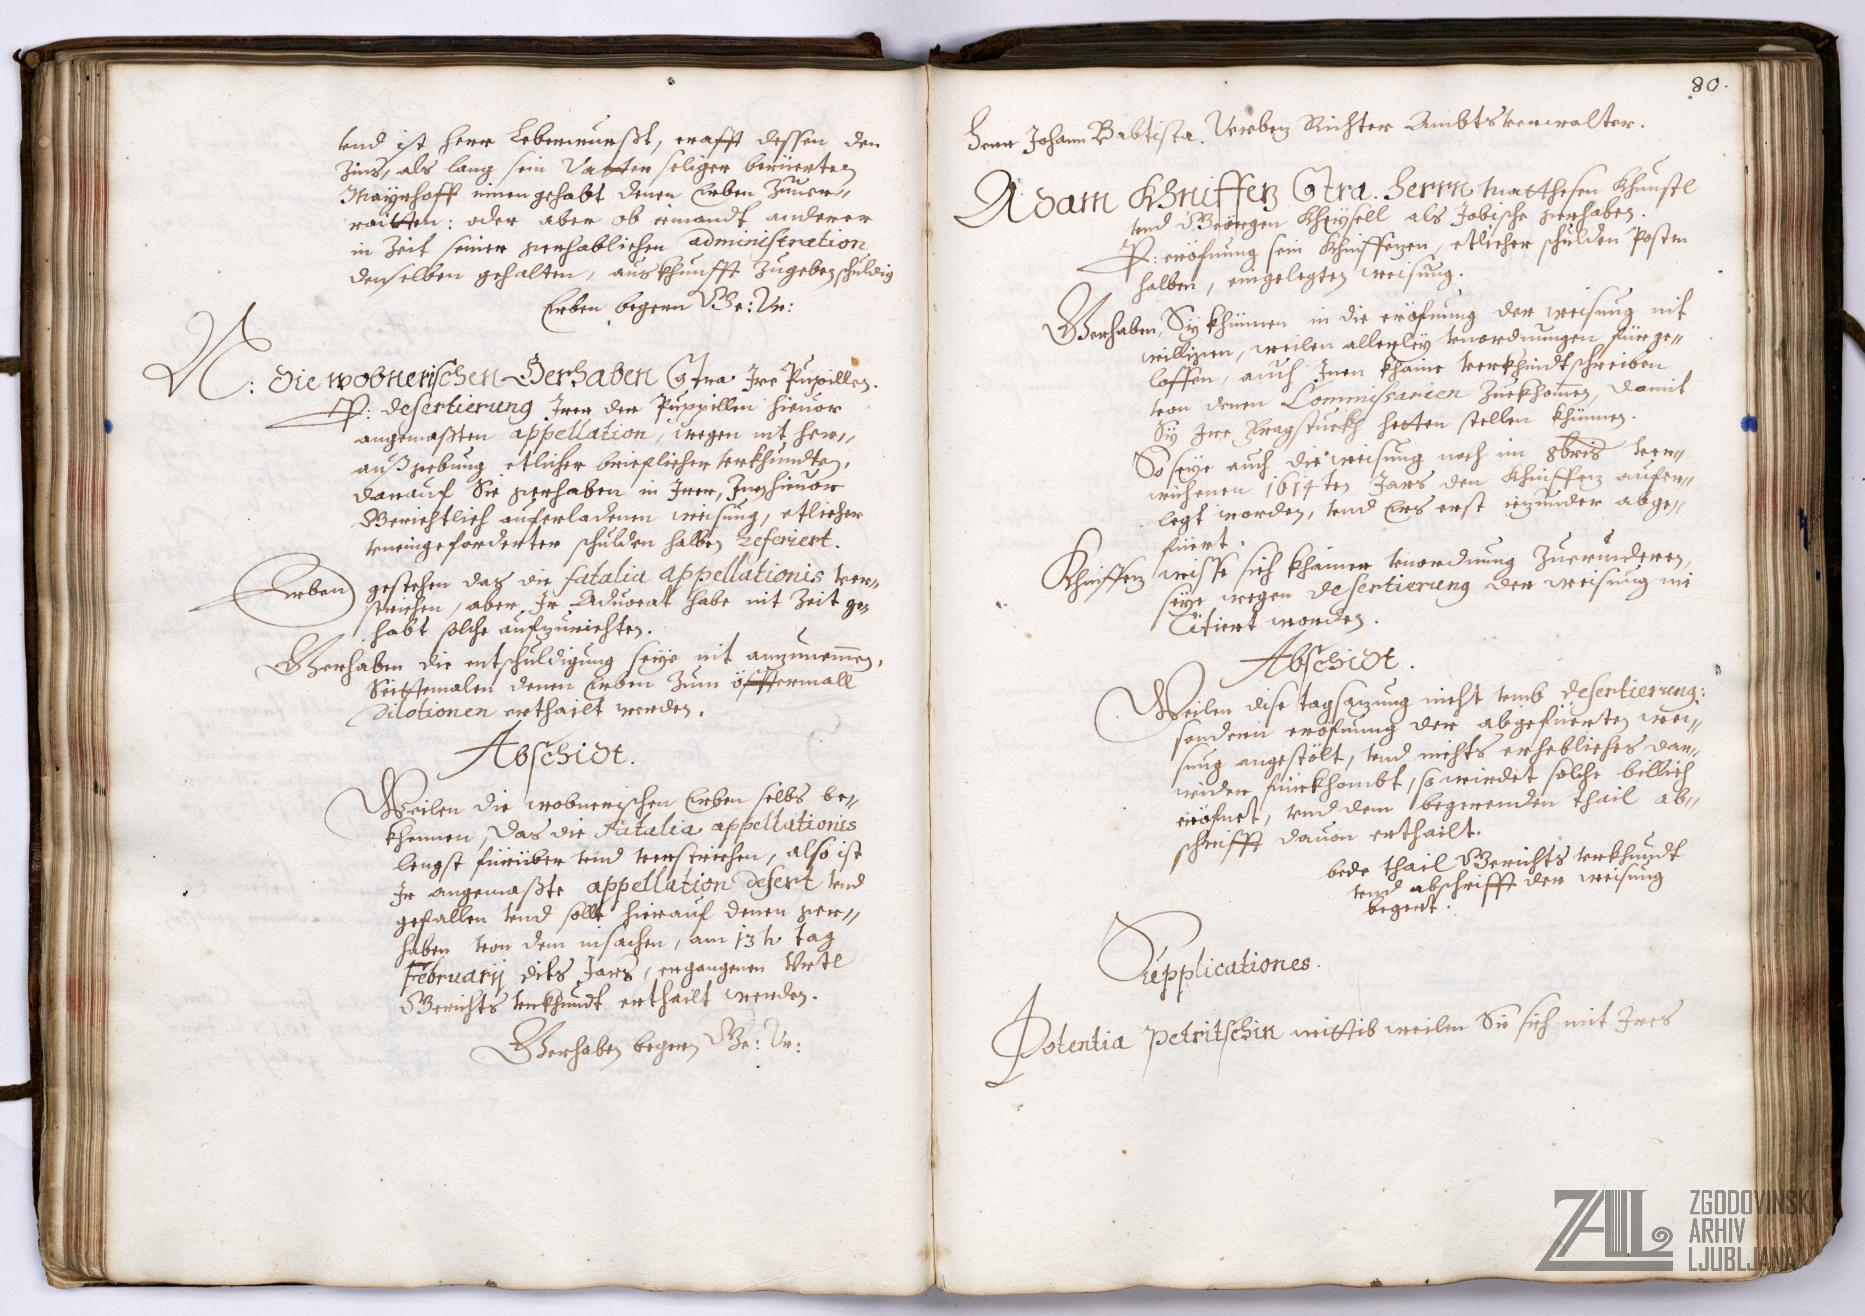 vnd ist Herr Leberwurßt, crafft dessen den
Zins, als lang sein Vatter seliger berüerten
Mayrhoff innengehabt denen Erben zuuer=
raitten: oder aber ob iemandt anderer
in Zeit seiner gerhablichen administration
denselben gehalten, auskhunfft zugeben schuldig
Erben begern Ge: Vr:
N: die wobnerischen Gerhaben Contra Ire Pupillen.
P: desertierung Irer der Puppillen hieuor
angemaßten appellation, wegen nit her=
außgebung etlicher brieflicher vrkhundten,
darauf Sie gerhaben in Irer, Inen hieuor
Gerichtlich auferladenen weisung, etlicher
vneingeforderter schulden halben referiert.
Erben gestehen das die fatalia appellationis ver=
strichen, aber Ir Aduocat habe nit Zeit ge=
habt solche aufzurichten.
Gerhaben die entschuldigung seye nit anzunemmen,
Seittemalen denen Erben zum öfftermall
dilationen erthailt worden.
Abschidt.
Weilen die wobnerischen Erben selbs be=
khennen, das die Fatalia appellationis
lengst fürüber vnd verstrichen, also ist
Ir angemaßte appellation desert vnd
gefallen vnd solle hierauf denen ger=
haben von dem in sachen, am 13 tn tag
February dits Jars, ergangenen Vrtl
Gerichts vrkhundt erthailt werden.
Gerhaben begern Ge: Vr:
80.
Herr Johann Babtista Verbez Richter Ambtsverwalter.
Adam Khniffez Contra Herrn Matthesen Khunstl
vnd Geörgen Khrysell als Jobische gerhaben.
P: eröfnung sein Khniffezen, etlicher schulden Posten
halben, eingelegten weisung.
Gerhaben, Sy khünnen in die eröfnung der weisung nit
willigen, weilen allerley vnordnungen fürge=
loffen, auch Inen khaine verkhündtschreiben
von denen Commissarien zuekhomen, damit
Sy Ire Fragstuckh hetten stellen khünnen.
So seye auch die weisung noch im 8bris ver=
wichenen 1614ten Jars den Khniffez aufer=
legt worden, vnd Ers erst iezunder abge=
füert.
Khniffez wisse sich khainer vnordnung zuerinderen,
seye wegen desertierung der weisung nie
Citiert worden.
Abschidt.
Weilen dise tagsazung nicht vmb desertierung:
sondern eröfnung der abgefüerten wei=
sung angestölt, vnd nichts erhebliches dar=
wider fürkhombt, so wirdet solche billich
eröfnet, vnd dem begerenden thail ab=
schrifft dauon erthailt.
bede thail Gerichts vrkhundt
vnd abschrifft der weisung
begert.
Supplicationes.
Potentia Petritschin wittib weilen Sie sich mit Ires
ZAL
ZGODOVINSKI
ARHIV
LJUBLJANA